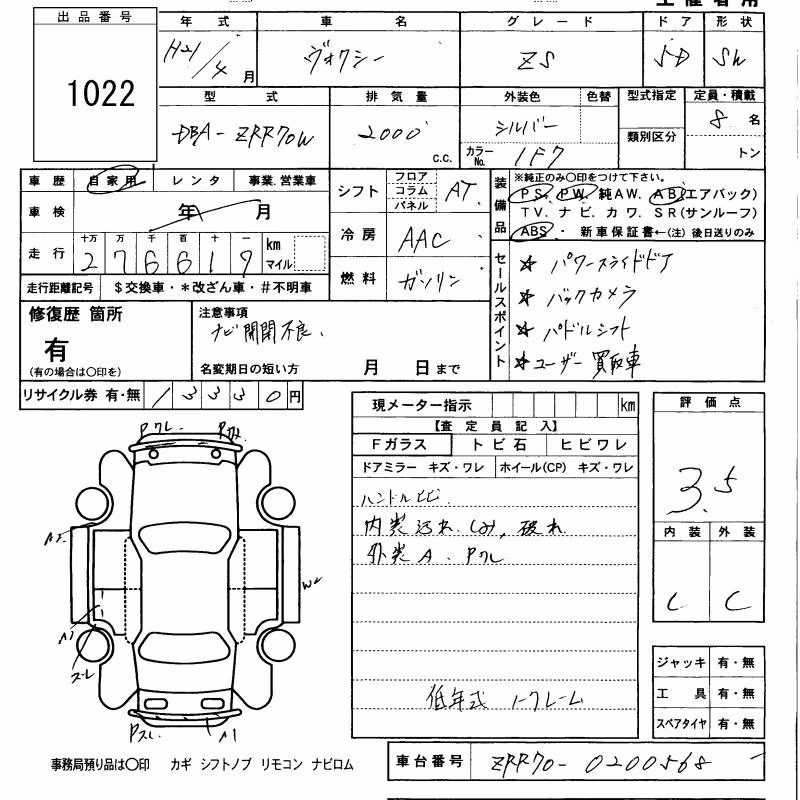 出品番号
1022
年式 車名 グレード ドア 形状
H21/4月 ヴォクシー ZS 5D SW
型式 排気量 外装色 色替 型式指定 定員・積載
DBA-ZRR70W 2000 c.c. シルバー 類別区分 8名
カラーNo. 1F7 トン
車歴 自家用 レンタ 事業.営業車
車検 年 月
走行 十万 万 千 百 十 一 km マイル
276619
走行距離記号 $交換車・*改ざん車・#不明車
シフト フロア コラム パネル AT
冷房 AAC
燃料 ガソリン
装備品
※純正のみ〇印をつけて下さい。
PS. PW. 純AW. AB(エアバック)
TV. ナビ. カワ. SR(サンルーフ)
ABS・ 新車保証書←(注)後日送りのみ
セールスポイント
☆ パワースライドドア
☆ バックカメラ
☆ パドルシフト
☆ ユーザー買取車
修復歴 箇所
有
(有の場合は〇印を)
注意事項
ナビ開閉不良、
名変期日の短い方 月 日まで
リサイクル券 有・無 13330円
現メーター指示 km
【査定員記入】
Fガラス トビ石 ヒビワレ
ドアミラー キズ・ワレ ホイール(CP) キズ・ワレ
ハンドルヒビ.
内装汚れ.しみ,破れ
外装A.Pワレ
低年式 ノークレーム
評価点
3.5
内装 外装
C C
ジャッキ 有・無
工具 有・無
スペアタイヤ 有・無
Pワレ
A2
W2
A1
A1
事務局預り品は〇印 カギ シフトノブ リモコン ナビロム
車台番号 ZRR70-0200568